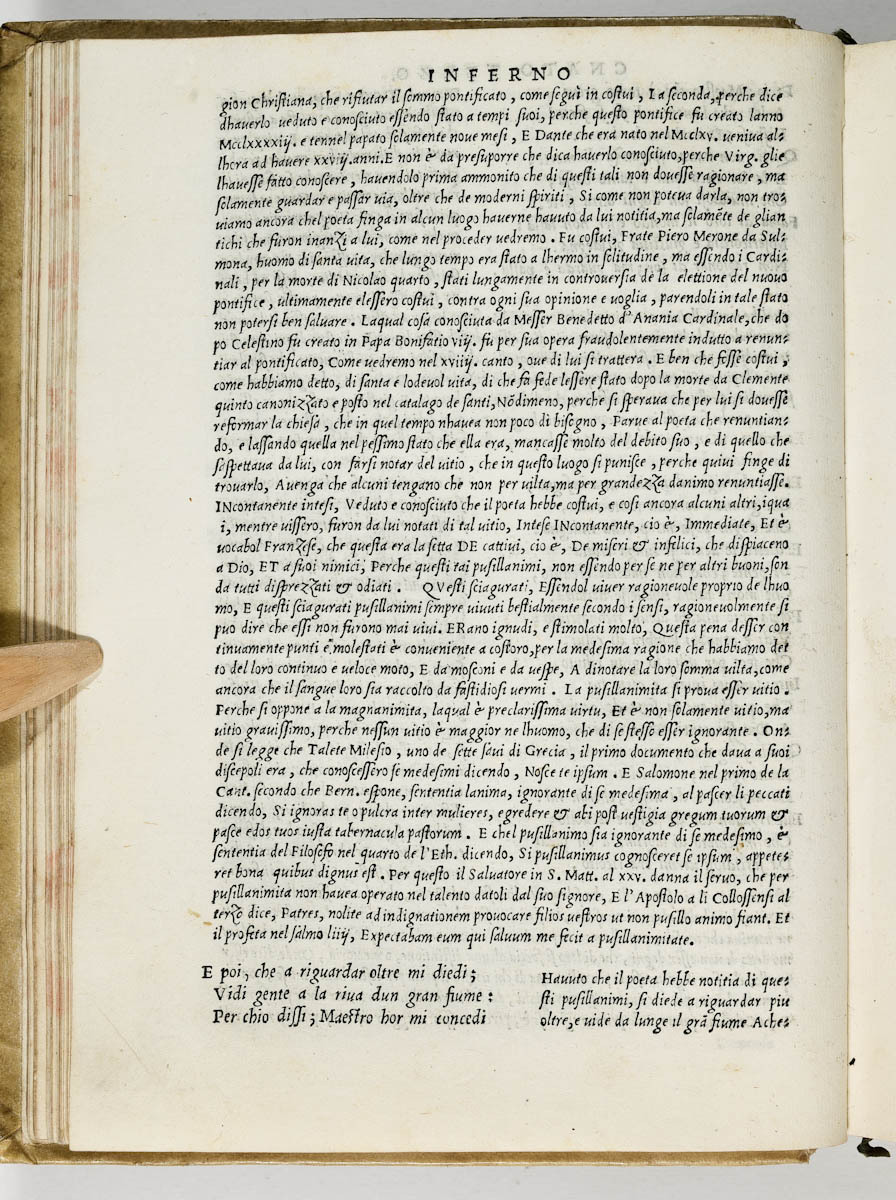 INFERNO
gion Christiana, che rifiutar il sommo pontificato, come seguì in costui, La seconda, perche dice
dhaverlo veduto e conosciuto essendo stato a tempi suoi, perche questo pontifice fu creato lanno
Mcclxxxxiiij. e tennel papato solamente nove mesi, E Dante che era nato nel Mcclxv. veniva al-
lhora ad havere xxviiij. anni. E non è da presuporre che dica haverlo conosciuto, perche Virg. glie
lhavesse fatto conoscere, havendolo prima ammonito che di questi tali non dovesse ragionare, ma
solamente guardar e passar via, oltre che de moderni spiriti, Si come non poteva darla, non tro-
viamo ancora chel poeta finga in alcun luogo haverne havuto da lui notitia, ma solamẽte de glian
tichi che furon inanzi a lui, come nel proceder vedremo. Fu costui, Frate Piero Merone da Sul-
mona, huomo di santa vita, che lungo tempo era stato a lhermo in solitudine, ma essendo i Cardi-
nali, per la morte di Nicolao quarto, stati lungamente in controversia de la elettione del nuovo
pontifice, ultimamente elessero costui, contra ogni sua opinione e voglia, parendoli in tale stato
non potersi ben salvare. Laqual cosa conosciuta da Messer Benedetto d'Anania Cardinale, che do
po Celestino fu creato in Papa Bonifatio viij. fu per sua opera fraudolentemente indutto a renun-
tiar al pontificato, Come vedremo nel xviiij. canto, ove di lui si trattera. E ben che fosse costui,
come habbiamo detto, di santa e lodevol vita, di che fa fede lessere stato dopo la morte da Clemente
quinto canonizzato e posto nel catalago de santi, Nõdimeno, perche si sperava che per lui si dovesse
reformar la chiesa, che in quel tempo nhavea non poco di bisogno, Parve al poeta che renuntian-
do, e lassando quella nel pessimo stato che ella era, mancasse molto del debito suo, e di quello che
s'espettava da lui, con farsi notar del vitio, che in questo luogo si punisce, perche quivi finge di
trovarlo, Avenga che alcuni tengano che non per vilta, ma per grandezza danimo renuntiasse.
INcontanente intesi, Veduto e conosciuto che il poeta hebbe costui, e cosi ancora alcuni altri, iqua
i, mentre vissero, furon da lui notati di tal vitio, Intese INcontanente, cio è, Immediate, Et è
vocabol Franzese, che questa era la setta DE cattivi, cio è, De miseri & infelici, che dispiaceno
a Dio, ET a suoi nimici, Perche questi tai pusillanimi, non essendo per se ne per altri buoni, son
da tutti disprezzati & odiati. QVesti sciagurati, Essendol viver ragionevole proprio de lhuo
mo, E questi sciagurati pusillanimi sempre vivuti bestialmente secondo i sensi, ragionevolmente si
puo dire che essi non furono mai vivi. ERano ignudi, e stimolati molto, Questa pena desser con
tinuamente punti e molestati è conveniente a costoro, per la medesima ragione che habbiamo det
to del loro continuo e veloce moto, E da mosconi e da vespe, A dinotare la loro somma vilta, come
ancora che il sangue loro sia raccolto da fastidiosi vermi. La pusillanimita si prova esser vitio.
Perche si oppone a la magnanimita, laqual è preclarissima virtu, Et è non solamente vitio, ma
vitio gravissimo, perche nessun vitio è maggior ne lhuomo, che di se stesso esser ignorante. On-
de si legge che Talete Milesio, uno de sette savi di Grecia, il primo documento che dava a suoi
discepoli era, che conoscessero se medesimi dicendo, Nosce te ipsum. E Salomone nel primo de la
Cant. secondo che Bern. espone, sententia lanima, ignorante di se medesima, al pascer li peccati
dicendo, Si ignoras te o pulcra inter mulieres, egredere & abi post vestigia gregum tuorum &
pasce edos tuos iusta tabernacula pastorum. E chel pusillanimo sia ignorante di se medesimo, è
sententia del Filosofo nel quarto de l'Eth. dicendo, Si pusillanimus cognosceret se ipsum, appete-
ret bona quibus dignus est. Per questo il Salvatore in S. Matt. al xxv. danna il servo, che per
pusillanimita non havea operato nel talento datoli dal suo signore, E l'Apostolo a li Collossensi al
terzo dice, Patres, nolite ad indignationem provocare filios vestros ut non pusillo animo fiant. Et
il profeta nel salmo liiij, Expectabam eum qui salvum me fecit a pusillanimitate.
E poi, che a riguardar oltre mi diedi;
Vidi gente a la riva dun gran fiume:
Per chio dissi; Maestro hor mi concedi
Havuto che il poeta hebbe notitia di que-
sti pusillanimi, si diede a riguardar piu
oltre, e vide da lunge il grã fiume Ache-